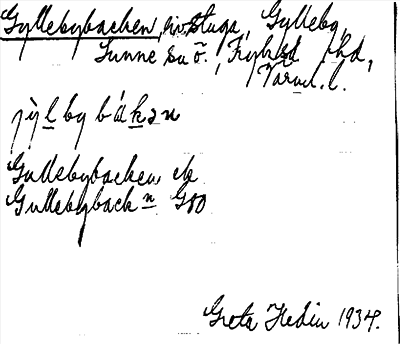 Gyllebybacken, riv. stuga, Gylleby,
Sunne sn ö., Fryksd. hd,
Värml. l.
jy̆lbybákən
Gullebybacken ek
Gullebyback n G80
Greta Hedin 1934.